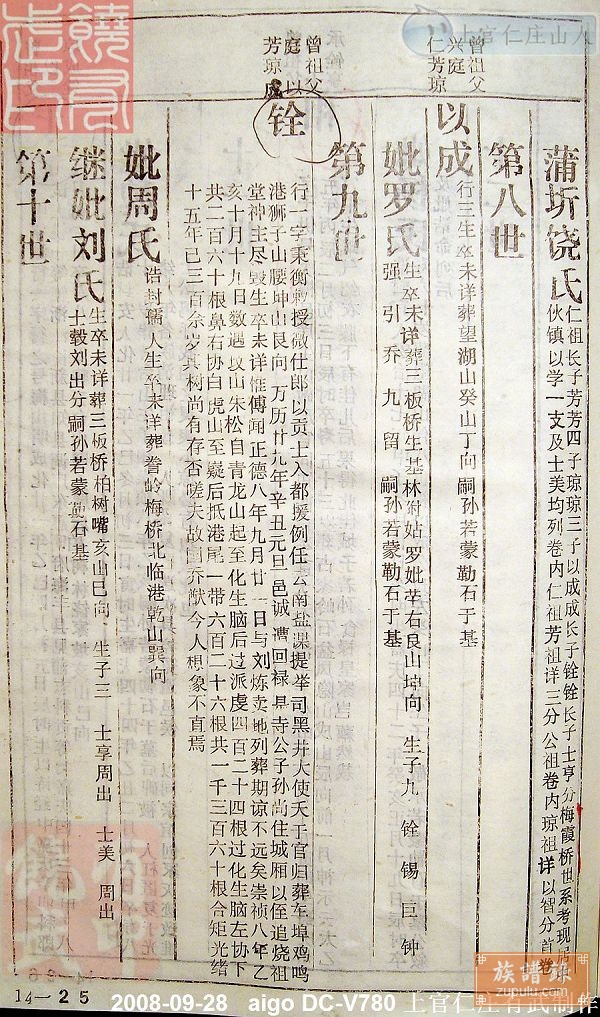 曾祖父
兴庭
仁芳琼
蒲圻饶氏
仁祖长子芳芳四子琼琼三子以成成长子铨铨长子士亨分梅霞桥世系考现居
伙镇以学一支及士美均列卷内仁祖芳祖详三分公祖卷内琼祖详以智分首卷
第八世
以成
行三生卒未详葬望湖山癸山丁向 嗣孙若蒙勒石于基
妣罗氏
生卒未详葬三板桥生基林 姑罗妣茔右艮山坤向 生子九 铨 锡 巨 钟
强 引 乔 九 留 嗣孙若蒙勒石于基
第九世
曾祖父
庭以
芳琼成
铨
行一字秉衡敕授微仕郎以贡士入都援例任云南盐课提举司黑井大使夭于官归葬车埠鸡鸣
港狮子山腰坤山艮向 万历廿九年辛丑元旦邑诚遭回禄 寺公子孙尚住城厢以侄追烧祖
堂神主尽毁生卒未详惟傅闻正德八年九月廿一日与刘炼卖地列葬期谅不远矣崇祯八年乙
亥十月十九日数遇 山朱松自青龙山起至化生脑后过派虔四百二十四根过化生脑左协下
共二百六十根鼻右协白虎山至嶷后抵港尾一带六百二十六根共一千三百六十根合矩光绪
十五年已三百余岁其树尚有存否嗟夫故国乔猷今人想象不直焉
妣周氏
诰封孺人生卒未详葬誊岭梅桥北临港乾山巽向
继妣刘氏
生卒未详葬三板桥柏树嘴亥山巳向 生子三 士享周出 士美 周出
士毅刘出分 嗣孙若蒙勒石基
第十世
14-25
2008-09-28 aigo DC-V780 上官仁庄有武制作
上官仁庄山人
族谱录
zupulu.com